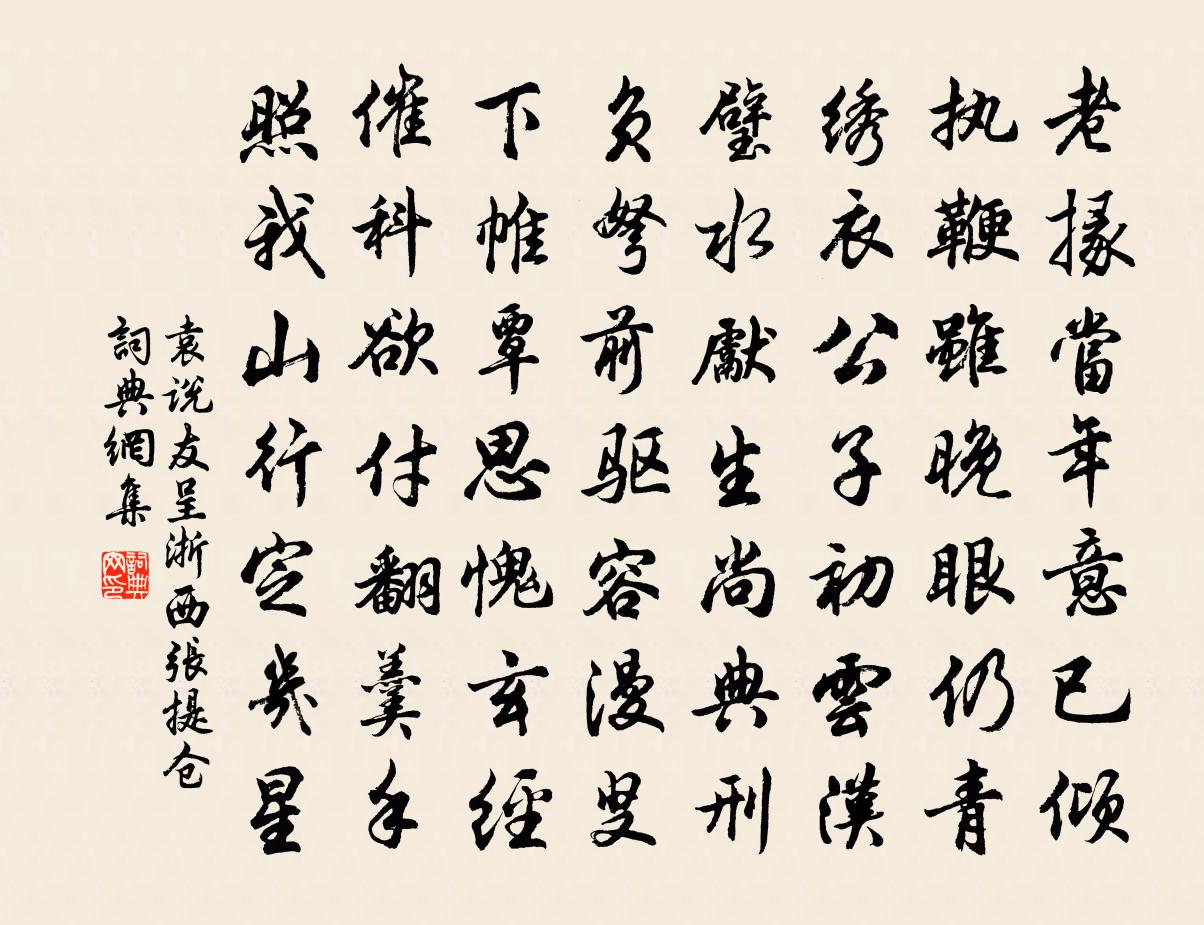 老掾當年意已傾
执鞭雖晚眼仍青
绣衣公子初雲漢
璧水獻生尚典刑
负弩前驱容漫叟
下帷覃思愧玄經
催科欲付翻羹手
照我山行定幾星
袁说友呈浙西張提仓
詞典網集
詞典网印